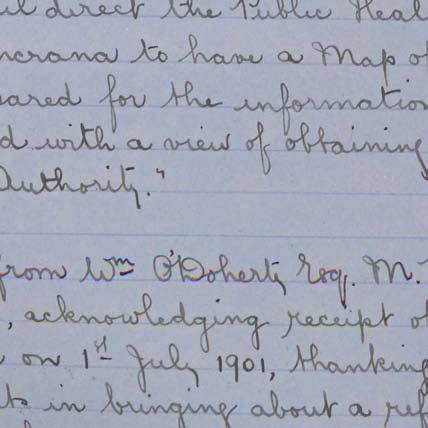 direct the Public Heal
ncrana to have a Map of
ared for the information
d with a view of obtaining
Authority."
from Wm O'Doherty Esq. M.
, acknowledging receipt of
on 1st July 1901, thanking
ts in bringing about a ref